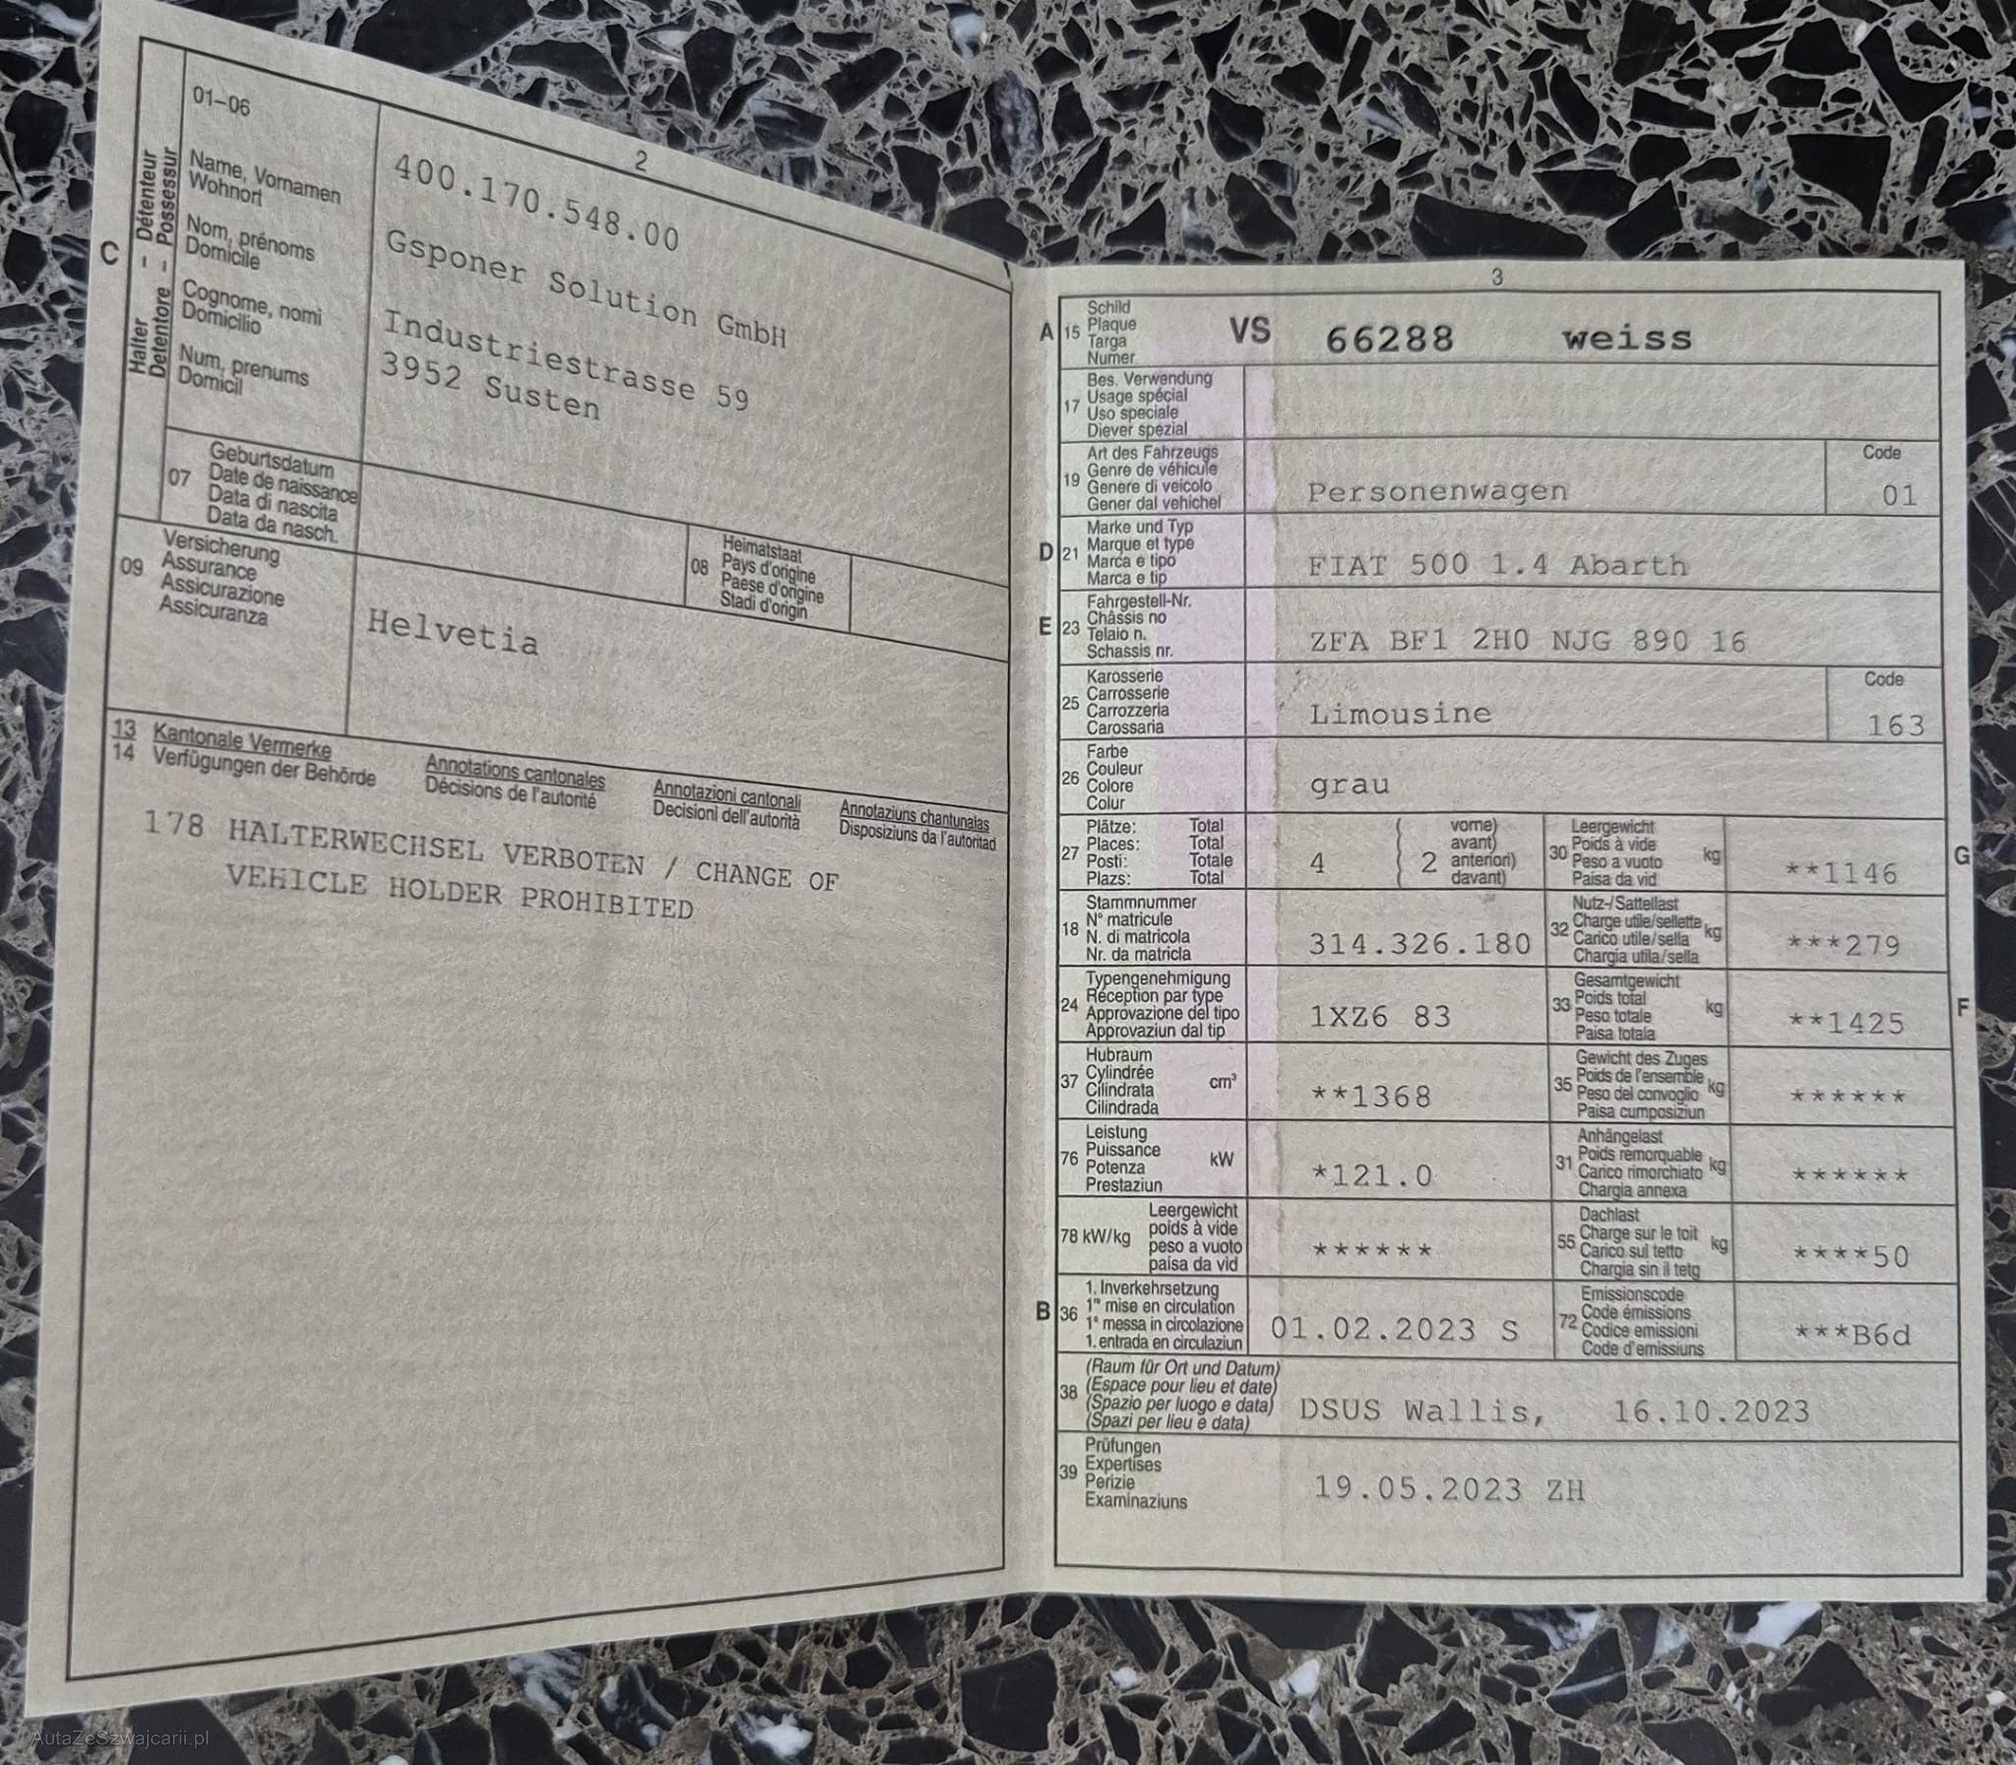 2
C
Halter – Détenteur
Detentore – Possessur
01–06
Name, Vornamen
Wohnort
Nom, prénoms
Domicile
Cognome, nomi
Domicilio
Num, prenums
Domicil
400.170.548.00
Gsponer Solution GmbH
Industriestrasse 59
3952 Susten
07
Geburtsdatum
Date de naissance
Data di nascita
Data da nasch.
08
Heimatstaat
Pays d'origine
Paese d'origine
Stadi d'origin
09
Versicherung
Assurance
Assicurazione
Assicuranza
Helvetia
13 Kantonale Vermerke Annotations cantonales Annotazioni cantonali Annotaziuns chantunalas
14 Verfügungen der Behörde Décisions de l'autorité Decisioni dell'autorità Disposiziuns da l'autoritad
178 HALTERWECHSEL VERBOTEN / CHANGE OF
VEHICLE HOLDER PROHIBITED
3
A 15
Schild
Plaque
Targa
Numer
VS 66288 weiss
17
Bes. Verwendung
Usage spécial
Uso speciale
Diever spezial
19
Art des Fahrzeugs
Genre de véhicule
Genere di veicolo
Gener dal vehichel
Personenwagen
Code
01
D 21
Marke und Typ
Marque et type
Marca e tipo
Marca e tip
FIAT 500 1.4 Abarth
E 23
Fahrgestell-Nr.
Châssis no
Telaio n.
Schassis nr.
ZFA BF1 2H0 NJG 890 16
25
Karosserie
Carrosserie
Carrozzeria
Carossaria
Limousine
Code
163
26
Farbe
Couleur
Colore
Colur
grau
27
Plätze: Total
Places: Total
Posti: Totale
Plazs: Total
4
2
vorne)
avant)
anteriori)
davant)
30
Leergewicht
Poids à vide
Peso a vuoto
Paisa da vid
kg
**1146
G
18
Stammnummer
N° matricule
N. di matricola
Nr. da matricla
314.326.180
32
Nutz-/Sattellast
Charge utile/sellette
Carico utile/sella
Chargia utila/sella
kg
***279
24
Typengenehmigung
Réception par type
Approvazione del tipo
Approvaziun dal tip
1XZ6 83
33
Gesamtgewicht
Poids total
Peso totale
Paisa totala
kg
**1425
F
37
Hubraum
Cylindrée
Cilindrata
Cilindrada
cm³
**1368
35
Gewicht des Zuges
Poids de l'ensemble
Peso del convoglio
Paisa cumposiziun
kg
******
76
Leistung
Puissance
Potenza
Prestaziun
kW
*121.0
31
Anhängelast
Poids remorquable
Carico rimorchiato
Chargia annexa
kg
******
78 kW/kg
Leergewicht
poids à vide
peso a vuoto
paisa da vid
******
55
Dachlast
Charge sur le toit
Carico sul tetto
Chargia sin il tetg
kg
****50
B 36
1. Inverkehrsetzung
1re mise en circulation
1a messa in circolazione
1. entrada en circulaziun
01.02.2023 S
72
Emissionscode
Code émissions
Codice emissioni
Code d'emissiuns
***B6d
38
(Raum für Ort und Datum)
(Espace pour lieu et date)
(Spazio per luogo e data)
(Spazi per lieu e data)
DSUS Wallis, 16.10.2023
39
Prüfungen
Expertises
Perizie
Examinaziuns
19.05.2023 ZH
AutaZeSzwajcarii.pl